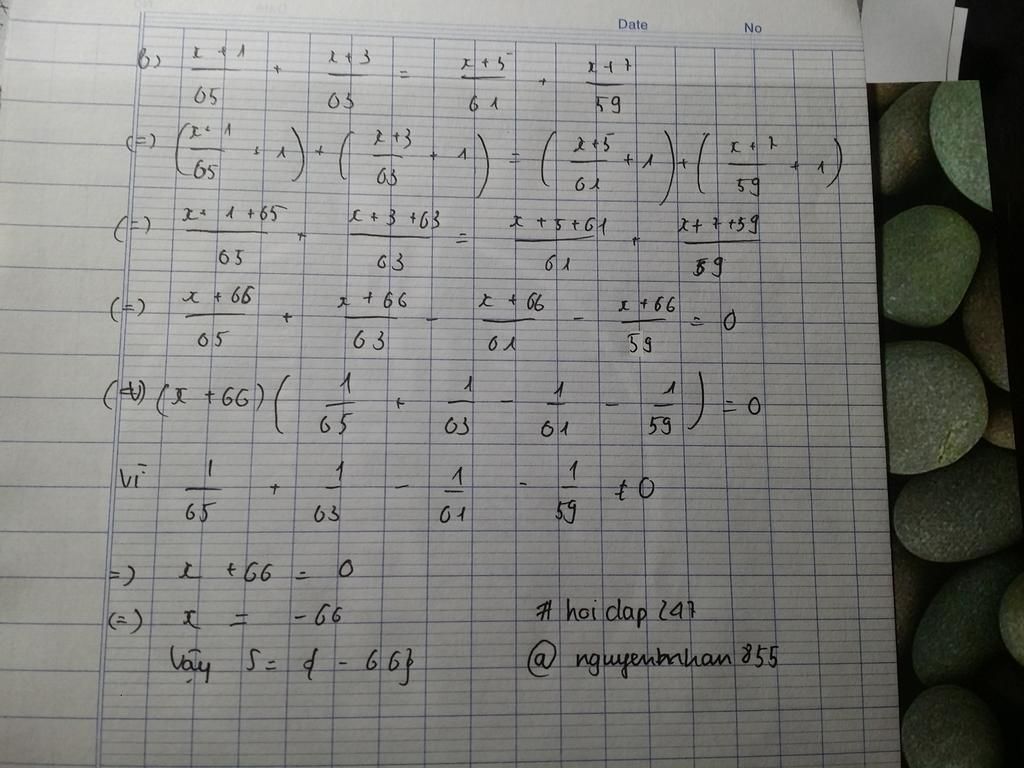 Date No
b) x + 1 / 65 + x + 3 / 63 = x + 5 / 61 + x + 7 / 59
(=) (x + 1 / 65 + 1) + (x + 3 / 63 + 1) = (x + 5 / 61 + 1) + (x + 7 / 59 + 1)
(=) x + 1 + 65 / 65 + x + 3 + 63 / 63 = x + 5 + 61 / 61 + x + 7 + 59 / 59
(=) x + 66 / 65 + x + 66 / 63 - x + 66 / 61 - x + 66 / 59 = 0
(=) (x + 66) (1 / 65 + 1 / 63 - 1 / 61 - 1 / 59) = 0
Vì 1 / 65 + 1 / 63 - 1 / 61 - 1 / 59 ≠ 0
=) x + 66 = 0
(=) x = - 66 # hoidap 247
Vậy S = { - 66} @ nguyenbnhan 855